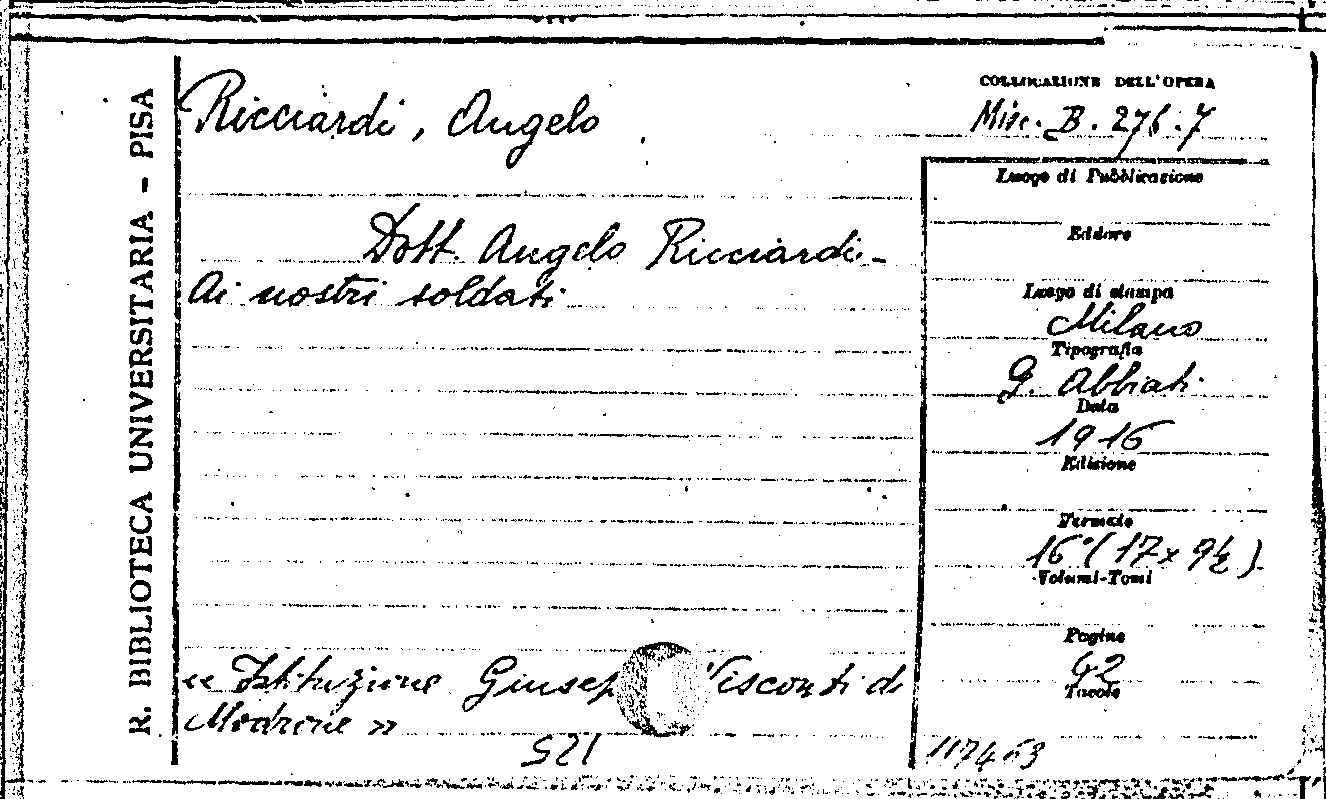 R. BIBLIOTECA UNIVERSITARIA - PISA
Ricciardi, Angelo
Dott. Angelo Ricciardi -
Ai nostri soldati
« Istituzione Giusep Visconti di
Modrone »
521
COLLOCAZIONE DELL'OPERA
Misc. B. 276.7
Luogo di Pubblicazione
Editore
Luogo di stampa
Milano
Tipografia
G. Abbiati
Data
1916
Edizione
Formato
16° (17 x 9½)
Volumi-Tomi
Pagine
42
Tavole
117463